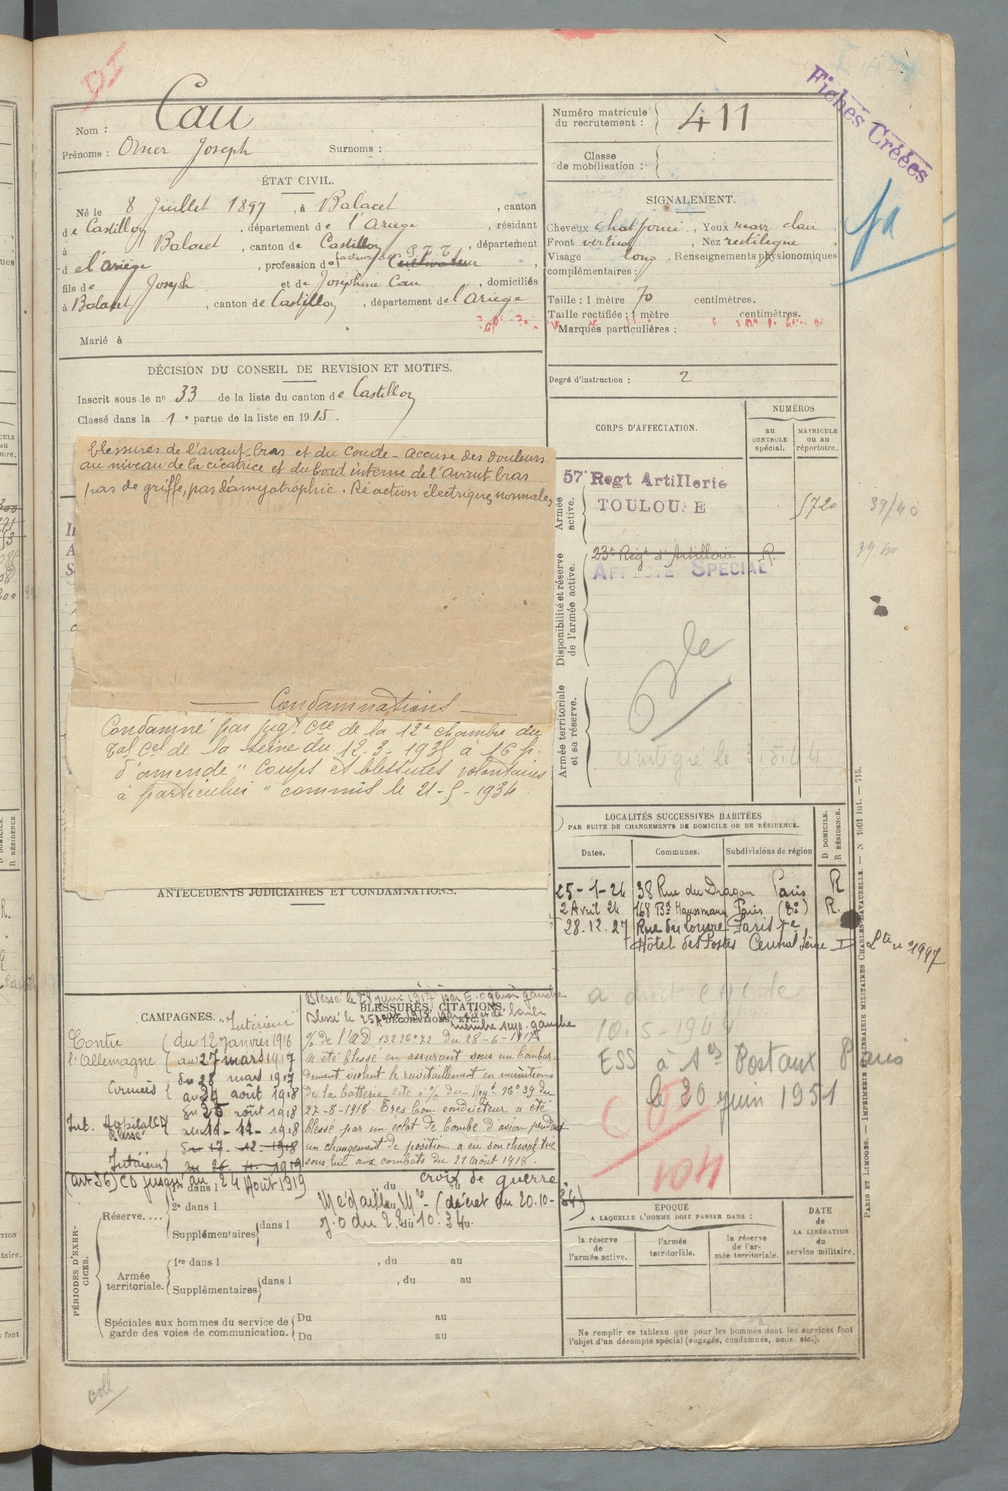 DI
Nom : Cau
Prénoms : Omer Joseph Surnoms :
ÉTAT CIVIL.
Né le 8 Juillet 1897, à Balacet, canton
de Castillon, département de l'Ariège, résidant
à Balacet, canton de Castillon, département
d e l'Ariège, profession de facteur des P.T.T. Cultivateur
fils de Joseph et de Joséphine Cau, domiciliés
à Balacet, canton de Castillon, département de l'Ariège
Marié à
DÉCISION DU CONSEIL DE REVISION ET MOTIFS.
Inscrit sous le nº 33 de la liste du canton de Castillon
Classé dans la 1e partie de la liste en 1915.
blessures de l'avant-bras et du Coude - accuse des douleurs
au niveau de la cicatrice et du bord interne de l'Avant bras
pas de griffe, pas d'amyotrophie. Réaction électrique, normale,
Condamnations
Condamné par jugt. cel de la 12e chambre du
Tal Cel de la Seine du 12-3-1935 à 16 f.
d'amende "Coups et blessures volontaires
à particulier" commis le 21-5-1934
ANTÉCÉDENTS JUDICIAIRES ET CONDAMNATIONS.
CAMPAGNES.
"Intérieur"
Contre (du 12 Janvier 1916
l'Allemagne (au 27 mars 1917
Armées du 28 mars 1917
au août 1918
Int. Hospitalisé du 25 août 1918
Blessé au 16-12-1918
Intérieur du 17.12.1918
(art 36) CD jusqu'au 24 Août 1919
BLESSURES, CITATIONS,
DÉCORATIONS, ETC.
Blessé le juin 1917 par gauche
Blessé le 25 août 1918 par éclat de bombe
membre sup. gauche
% de l'AD du 28-6-1917
a été blessé en assurant sous un bombar-
dement violent le ravitaillement en munitions
de la batterie Cité à % du Régt nº 39 du
27-8-1918 Très bon conducteur a été
blessé par un éclat de bombe d'avion pendant
un changement de position a eu son cheval tué
sous lui aux combats du 21 Août 1918.
croix de guerre
Médaille Mre - (décret du 20-10-34)
J.O du 10.34
PÉRIODES D'EXERCICES.
Réserve.... 1re dans l du au
2e dans l
Supplémentaires dans l du au
Armée territoriale. 1re dans l , du au
Supplémentaires dans l , du au
Spéciales aux hommes du service de garde des voies de communication. Du au
Du au
coll
Numéro matricule du recrutement : 411
Classe de mobilisation :
Fiches Créées
SIGNALEMENT.
Cheveux chat foncé, Yeux marr clair
Front vertical, Nez rectiligne,
Visage long, Renseignements physionomiques
complémentaires :
Taille : 1 mètre 70 centimètres.
Taille rectifiée : 1 mètre centimètres.
Marques particulières :
Degré d'instruction : 2
CORPS D'AFFECTATION.
NUMÉROS
AU CONTRÔLE SPÉCIAL.
MATRICULE OU AU RÉPERTOIRE.
Armée active.
57e Regt Artillerie
TOULOUSE
5720
39/40
39.40
Disponibilité et réserve de l'armée active.
23e Régt d'Artillerie R.
AFFECTÉ SPÉCIAL
Armée territoriale et sa réserve.
LOCALITÉS SUCCESSIVES HABITÉES
PAR SUITE DE CHANGEMENTS DE DOMICILE OU DE RÉSIDENCE.
Dates. Communes. Subdivisions de région
D DOMICILE.
R RÉSIDENCE.
25-1-24 38 Rue du Dragon Paris R
2 Avril 24 168 Bd Haussmann Paris (8e) R.
28.12.27 Rue du Louvre Paris 1e
Hôtel des Postes Central
10-5-1944
ESS à Postaux Paris
le 20 juin 1951
104
ÉPOQUE
A LAQUELLE L'HOMME DOIT PASSER DANS :
la réserve de l'armée active.
l'armée territoriale.
la réserve de l'armée territoriale.
DATE DE LA LIBÉRATION du service militaire.
Ne remplir ce tableau que pour les hommes dont les services font
l'objet d'un décompte spécial (engagés, condamnés, omis. etc.).
PARIS ET LIMOGES. — IMPRIMERIE ET LIBRAIRIE MILITAIRES CHARLES-LAVAUZELLE. — N 1601 int. — 715.